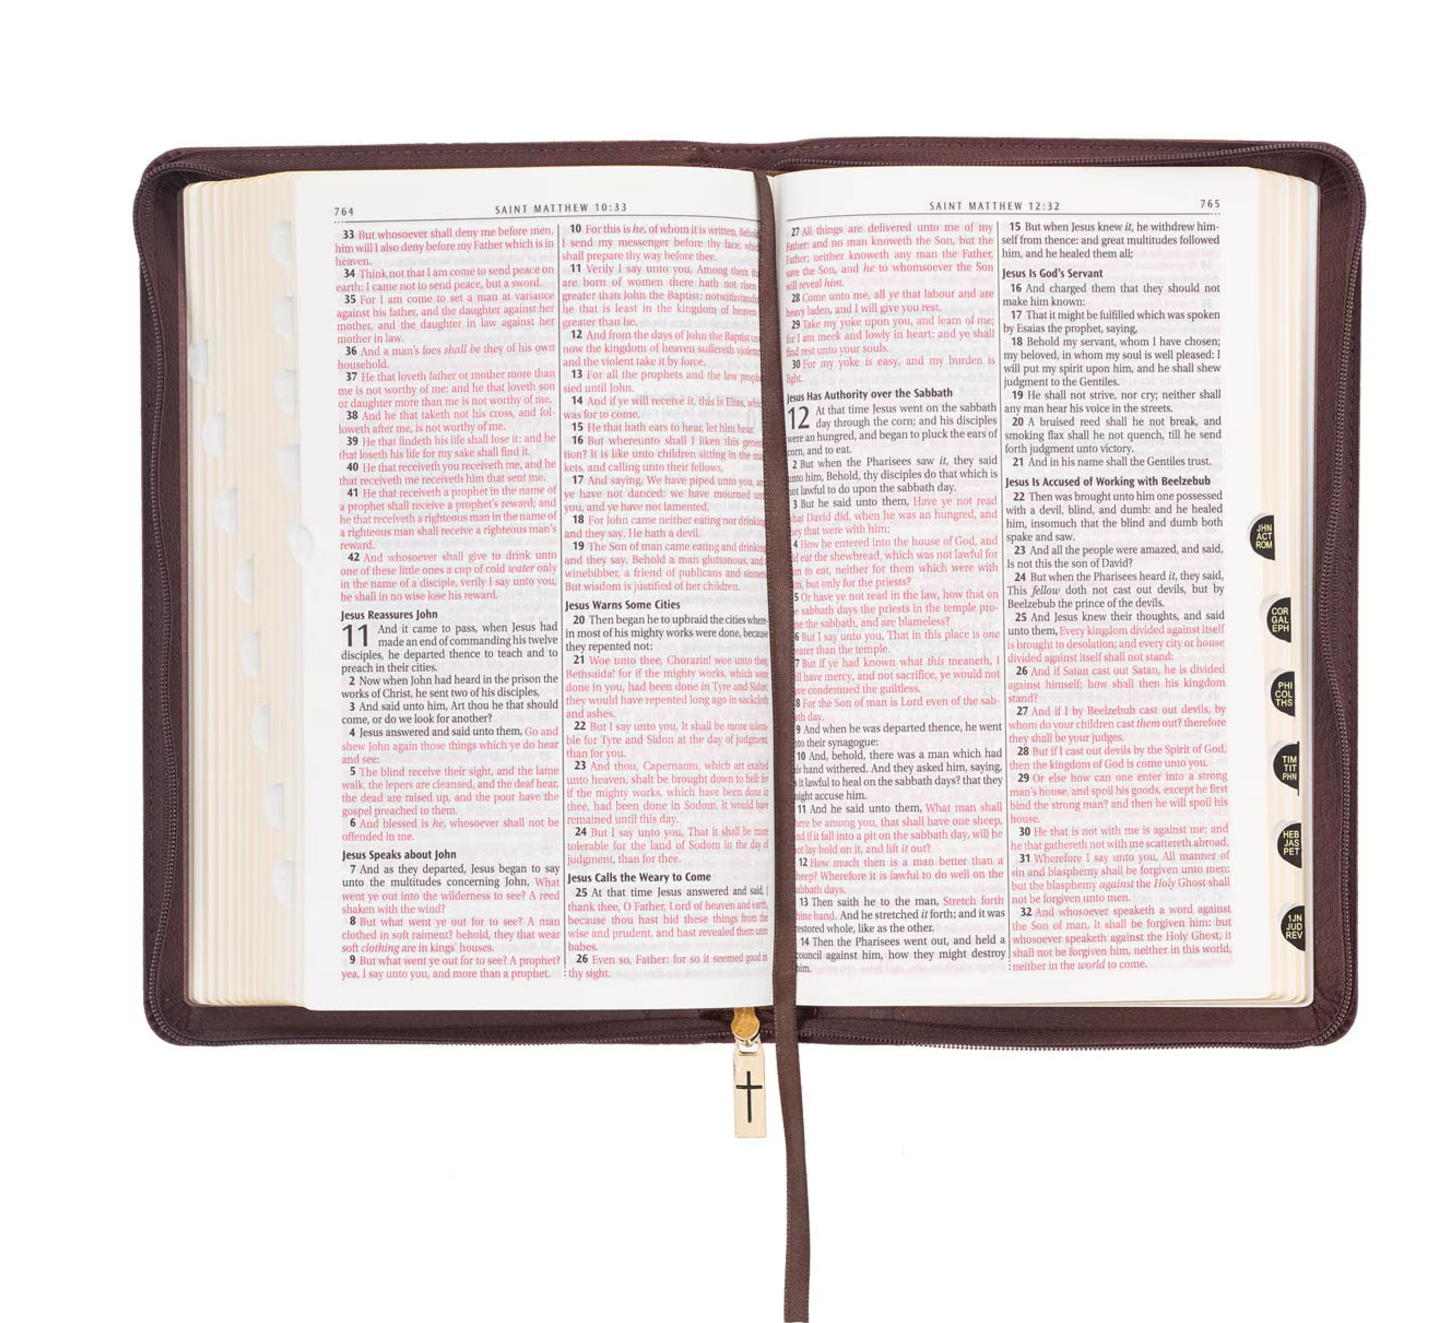 764
SAINT MATTHEW 10:33
33 But whosoever shall deny me before men,
him will I also deny before my Father which is in
heaven.
34 Think not that I am come to send peace on
earth: I came not to send peace, but a sword.
35 For I am come to set a man at variance
against his father, and the daughter against her
mother, and the daughter in law against her
mother in law.
36 And a man's foes shall be they of his own
household.
37 He that loveth father or mother more than
me is not worthy of me: and he that loveth son
or daughter more than me is not worthy of me.
38 And he that taketh not his cross, and fol-
loweth after me, is not worthy of me.
39 He that findeth his life shall lose it: and he
that loseth his life for my sake shall find it.
40 He that receiveth you receiveth me, and he
that receiveth me receiveth him that sent me.
41 He that receiveth a prophet in the name of
a prophet shall receive a prophet's reward; and
he that receiveth a righteous man in the name of
a righteous man shall receive a righteous man's
reward.
42 And whosoever shall give to drink unto
one of these little ones a cup of cold water only
in the name of a disciple, verily I say unto you,
he shall in no wise lose his reward.
Jesus Reassures John
11 And it came to pass, when Jesus had
made an end of commanding his twelve
disciples, he departed thence to teach and to
preach in their cities.
2 Now when John had heard in the prison the
works of Christ, he sent two of his disciples,
3 And said unto him, Art thou he that should
come, or do we look for another?
4 Jesus answered and said unto them, Go and
shew John again those things which ye do hear
and see:
5 The blind receive their sight, and the lame
walk, the lepers are cleansed, and the deaf hear,
the dead are raised up, and the poor have the
gospel preached to them.
6 And blessed is he, whosoever shall not be
offended in me.
Jesus Speaks about John
7 And as they departed, Jesus began to say
unto the multitudes concerning John, What
went ye out into the wilderness to see? A reed
shaken with the wind?
8 But what went ye out for to see? A man
clothed in soft raiment? behold, they that wear
soft clothing are in kings' houses.
9 But what went ye out for to see? A prophet?
yea, I say unto you, and more than a prophet.
10 For this is he, of whom it is written, Behold,
I send my messenger before thy face, which
shall prepare thy way before thee.
11 Verily I say unto you, Among them
are born of women there hath not risen
greater than John the Baptist: notwithstanding
he that is least in the kingdom of heaven
greater than he.
12 And from the days of John the Baptist
now the kingdom of heaven suffereth violence,
and the violent take it by force.
13 For all the prophets and the law
sied until John.
14 And if ye will receive it, this is Elias,
was for to come.
15 He that hath ears to hear, let him hear.
16 But whereunto shall I liken this
tion? It is like unto children sitting in the
kets, and calling unto their fellows,
17 And saying, We have piped unto you,
ye have not danced; we have mourned
you, and ye have not lamented.
18 For John came neither eating nor drinking,
and they say, He hath a devil.
19 The Son of man came eating and drinking,
and they say, Behold a man gluttonous, and
winebibber, a friend of publicans and sinners.
But wisdom is justified of her children.
Jesus Warns Some Cities
20 Then began he to upbraid the cities where-
in most of his mighty works were done, because
they repented not:
21 Woe unto thee, Chorazin! woe unto thee,
Bethsaida! for if the mighty works, which were
done in you, had been done in Tyre and Sidon,
they would have repented long ago in sackcloth
and ashes.
22 But I say unto you, It shall be more tolera-
ble for Tyre and Sidon at the day of judgment,
than for you.
23 And thou, Capernaum, which art exalted
unto heaven, shalt be brought down to hell: for
if the mighty works, which have been done in
thee, had been done in Sodom, it would have
remained until this day.
24 But I say unto you, That it shall be more
tolerable for the land of Sodom in the day of
judgment, than for thee.
Jesus Calls the Weary to Come
25 At that time Jesus answered and said, I
thank thee, O Father, Lord of heaven and earth,
because thou hast hid these things from the
wise and prudent, and hast revealed them unto
babes.
26 Even so, Father: for so it seemed good in
thy sight.
SAINT MATTHEW 12:32
765
27 All things are delivered unto me of my
Father: and no man knoweth the Son, but the
Father; neither knoweth any man the Father,
save the Son, and he to whomsoever the Son
will reveal him.
28 Come unto me, all ye that labour and are
heavy laden, and I will give you rest.
29 Take my yoke upon you, and learn of me;
for I am meek and lowly in heart: and ye shall
find rest unto your souls.
30 For my yoke is easy, and my burden is
light.
Jesus Has Authority over the Sabbath
12 At that time Jesus went on the sabbath
day through the corn; and his disciples
were an hungred, and began to pluck the ears of
corn, and to eat.
2 But when the Pharisees saw it, they said
unto him, Behold, thy disciples do that which is
not lawful to do upon the sabbath day.
3 But he said unto them, Have ye not read
what David did, when he was an hungred, and
they that were with him;
4 How he entered into the house of God, and
did eat the shewbread, which was not lawful for
him to eat, neither for them which were with
him, but only for the priests?
5 Or have ye not read in the law, how that on
sabbath days the priests in the temple pro-
the sabbath, and are blameless?
6 But I say unto you, That in this place is one
greater than the temple.
7 But if ye had known what this meaneth, I
will have mercy, and not sacrifice, ye would not
have condemned the guiltless.
8 For the Son of man is Lord even of the sab-
bath day.
9 And when he was departed thence, he went
into their synagogue:
10 And, behold, there was a man which had
his hand withered. And they asked him, saying,
Is it lawful to heal on the sabbath days? that they
might accuse him.
11 And he said unto them, What man shall
there be among you, that shall have one sheep,
and if it fall into a pit on the sabbath day, will he
not lay hold on it, and lift it out?
12 How much then is a man better than a
sheep? Wherefore it is lawful to do well on the
sabbath days.
13 Then saith he to the man, Stretch forth
thine hand. And he stretched it forth; and it was
restored whole, like as the other.
14 Then the Pharisees went out, and held a
council against him, how they might destroy
him.
15 But when Jesus knew it, he withdrew him-
self from thence: and great multitudes followed
him, and he healed them all;
Jesus Is God's Servant
16 And charged them that they should not
make him known:
17 That it might be fulfilled which was spoken
by Esaias the prophet, saying,
18 Behold my servant, whom I have chosen;
my beloved, in whom my soul is well pleased: I
will put my spirit upon him, and he shall shew
judgment to the Gentiles.
19 He shall not strive, nor cry; neither shall
any man hear his voice in the streets.
20 A bruised reed shall he not break, and
smoking flax shall he not quench, till he send
forth judgment unto victory.
21 And in his name shall the Gentiles trust.
Jesus Is Accused of Working with Beelzebub
22 Then was brought unto him one possessed
with a devil, blind, and dumb: and he healed
him, insomuch that the blind and dumb both
spake and saw.
23 And all the people were amazed, and said,
Is not this the son of David?
24 But when the Pharisees heard it, they said,
This fellow doth not cast out devils, but by
Beelzebub the prince of the devils.
25 And Jesus knew their thoughts, and said
unto them, Every kingdom divided against itself
is brought to desolation; and every city or house
divided against itself shall not stand:
26 And if Satan cast out Satan, he is divided
against himself; how shall then his kingdom
stand?
27 And if I by Beelzebub cast out devils, by
whom do your children cast them out? therefore
they shall be your judges.
28 But if I cast out devils by the Spirit of God,
then the kingdom of God is come unto you.
29 Or else how can one enter into a strong
man's house, and spoil his goods, except he first
bind the strong man? and then he will spoil his
house.
30 He that is not with me is against me; and
he that gathereth not with me scattereth abroad.
31 Wherefore I say unto you, All manner of
sin and blasphemy shall be forgiven unto men:
but the blasphemy against the Holy Ghost shall
not be forgiven unto men.
32 And whosoever speaketh a word against
the Son of man, it shall be forgiven him: but
whosoever speaketh against the Holy Ghost, it
shall not be forgiven him, neither in this world,
neither in the world to come.
JHN
ACT
ROM
COR
GAL
EPH
PHI
COL
THS
TIM
TIT
PHN
HEB
JAS
PET
1JN
JUD
REV